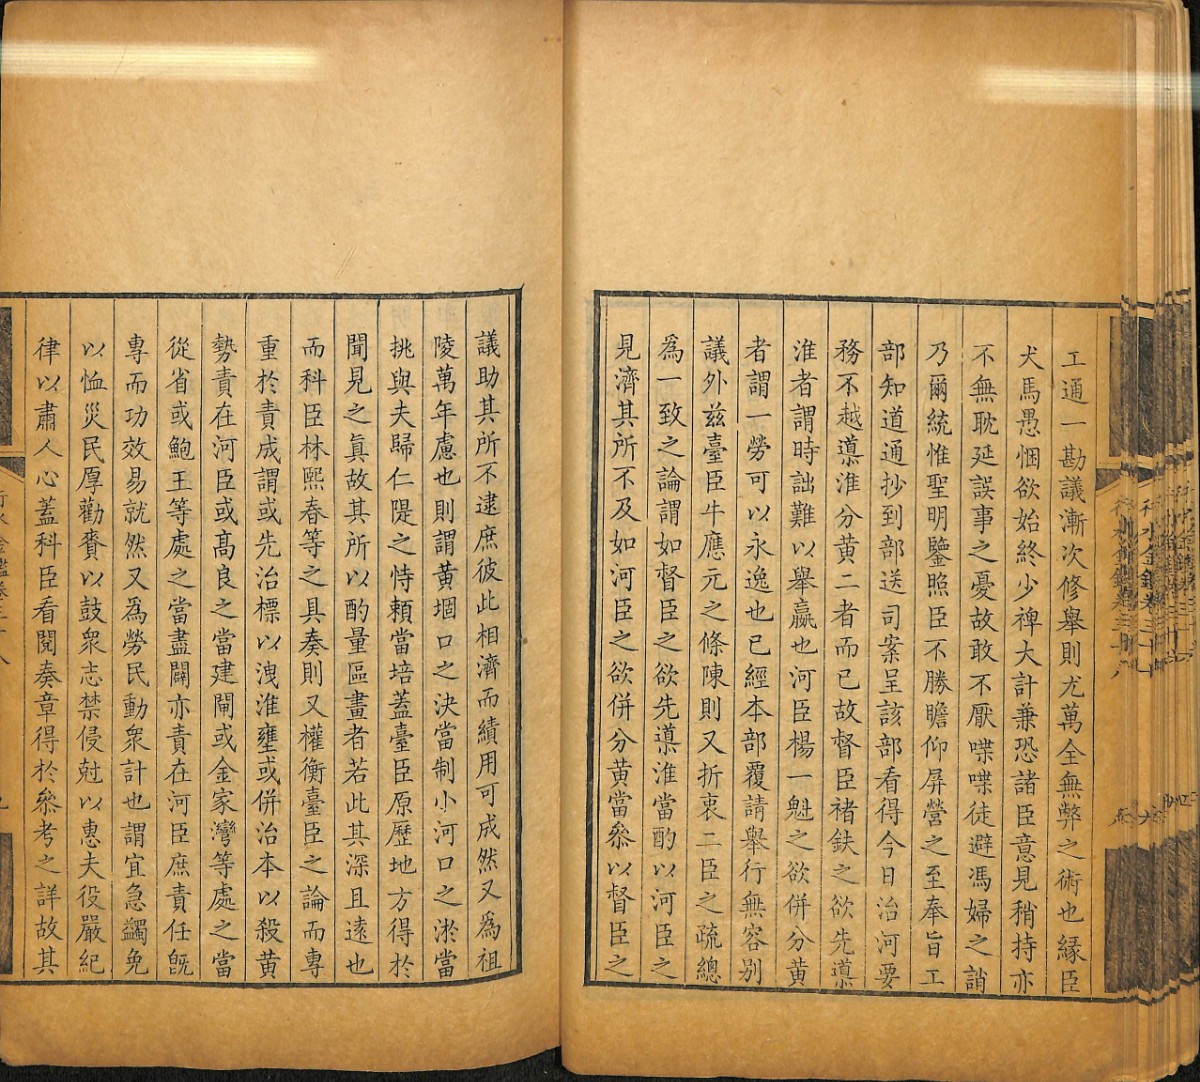 工通一勘議漸次修舉則尤萬全無弊之術也縁臣
犬馬愚悃欲始終少禆大計兼恐諸臣意見稍持亦
不無耽延誤事之憂故敢不厭喋喋徒避馮婦之誚
乃爾統惟聖明鑒照臣不勝瞻仰屏營之至奉旨工
部知道通抄到部送司案呈該部看得今日治河要
務不越導淮分黄二者而已故督臣褚鈇之欲先導
淮者謂時詘難以舉贏也河臣楊一魁之欲併分黄
者謂一勞可以永逸也已經本部覆請舉行無容别
議外兹臺臣牛應元之條陳則又折衷二臣之疏總
為一致之論謂如督臣之欲先導淮當酌以河臣之
見濟其所不及如河臣之欲併分黄當叅以督臣之
議助其所不逮庶彼此相濟而績用可成然又為祖
陵萬年慮也則謂黄堌口之決當制小河口之淤當
挑與夫歸仁隄之恃頼當培蓋臺臣原歴地方得於
聞見之真故其所以酌量區畫者若此其深且逺也
而科臣林熙春等之具奏則又權衡臺臣之論而專
重於責成謂或先治標以洩淮壅或併治本以殺黄
勢責在河臣或高良之當建閘或金家灣等處之當
從省或鮑王等處之當盡闢亦責在河臣庶責任既
專而功效易就然又為勞民動衆計也謂宜急蠲免
以恤災民厚勸賚以鼓衆志禁侵尅以惠夫役嚴紀
律以肅人心蓋科臣看閱奏章得於叅考之詳故其